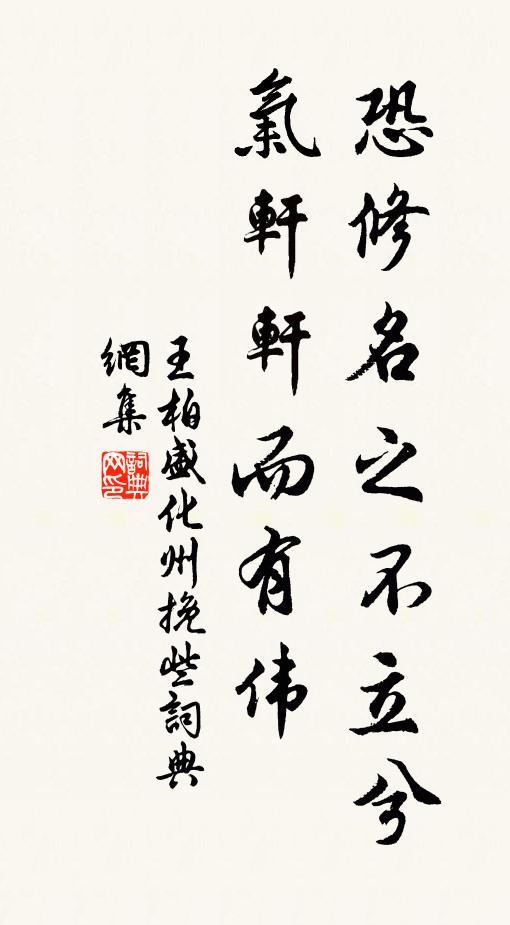 恐修名之不立兮
氣軒軒而有伟
王柏盛化州挽些詞典
網集
詞典
网印